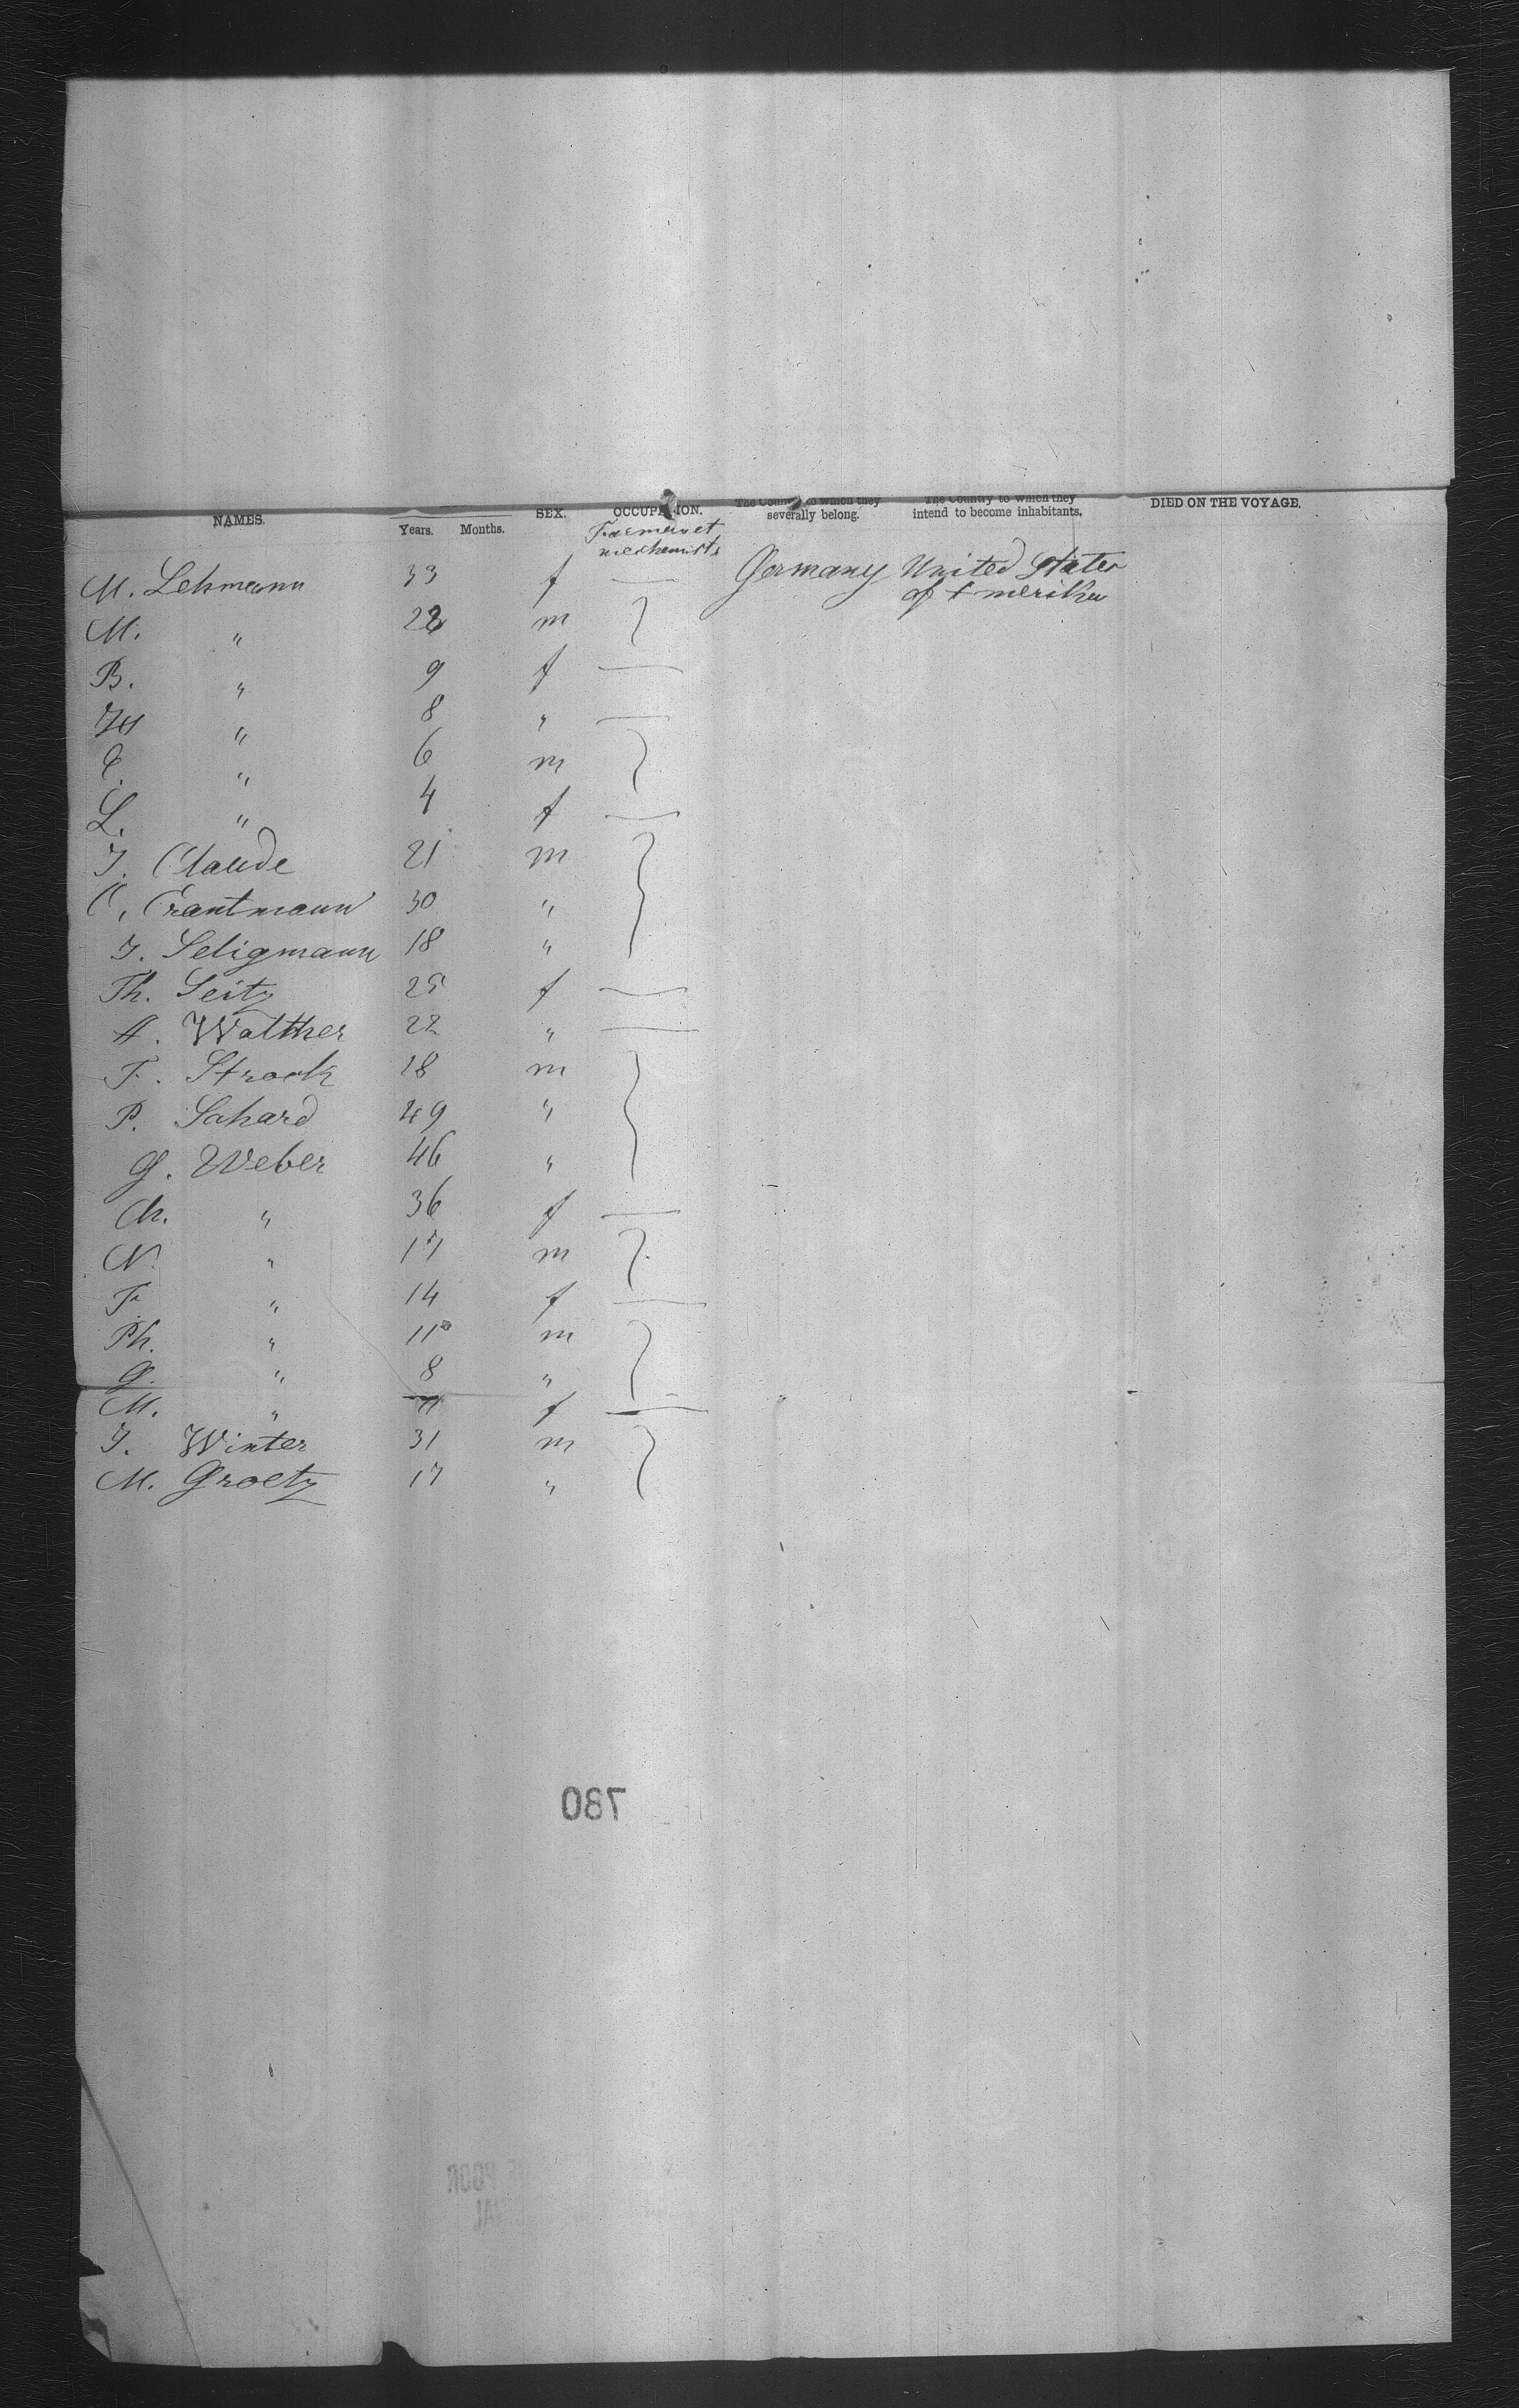 NAMES. Years. Months. SEX. OCCUPATION. The Country to which they severally belong. The Country to which they intend to become inhabitants. DIED ON THE VOYAGE.
Farmers et
mechanists
M. Lehmann 33 f — Germany United States
of Amerika
M. " 28 m
B. " 9 f —
" 8 " —
C. " 6 m
L. " 4 f —
J. Claude 21 m
C. Erantmann 30 "
J. Seligmann 18 "
Th. Seitz 25 f —
A. Walther 22 " —
F. Strock 18 m
P. Sahard 49 "
G. Weber 46 "
Ch. " 36 f —
N. " 17 m
F. " 14 f —
Ph. " 11 m
G. " 8 "
M. " f —
J. Winter 31 m
M. Groetz 17 "
780
POOR